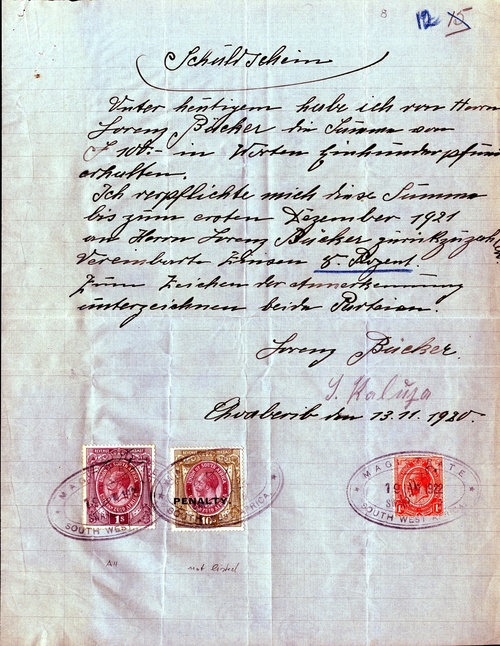 8
12 15
Schuldschein
Unter heutigem habe ich von Herrn
Lorenz Bücker die Summe von
£ 100.- in Worten Einhundertpfund
erhalten.
Ich verpflichte mich diese Summe
bis zum ersten Dezember 1921
an Herrn Lorenz Bücker zurückzuzah
Vereinbarte Zinsen 8. Prozent
Zum Zeichen der Annerkennung
unterzeichnen beide Partien.
Lorenz Bücker.
J. Kaluza
den 13.11.1920.
REVENUE
1s
PENALTY
10
1d
MAGISTRATE
SOUTH WEST
AFRICA
MAGISTRATE
19
SOUTH WEST AFRICA
not listed